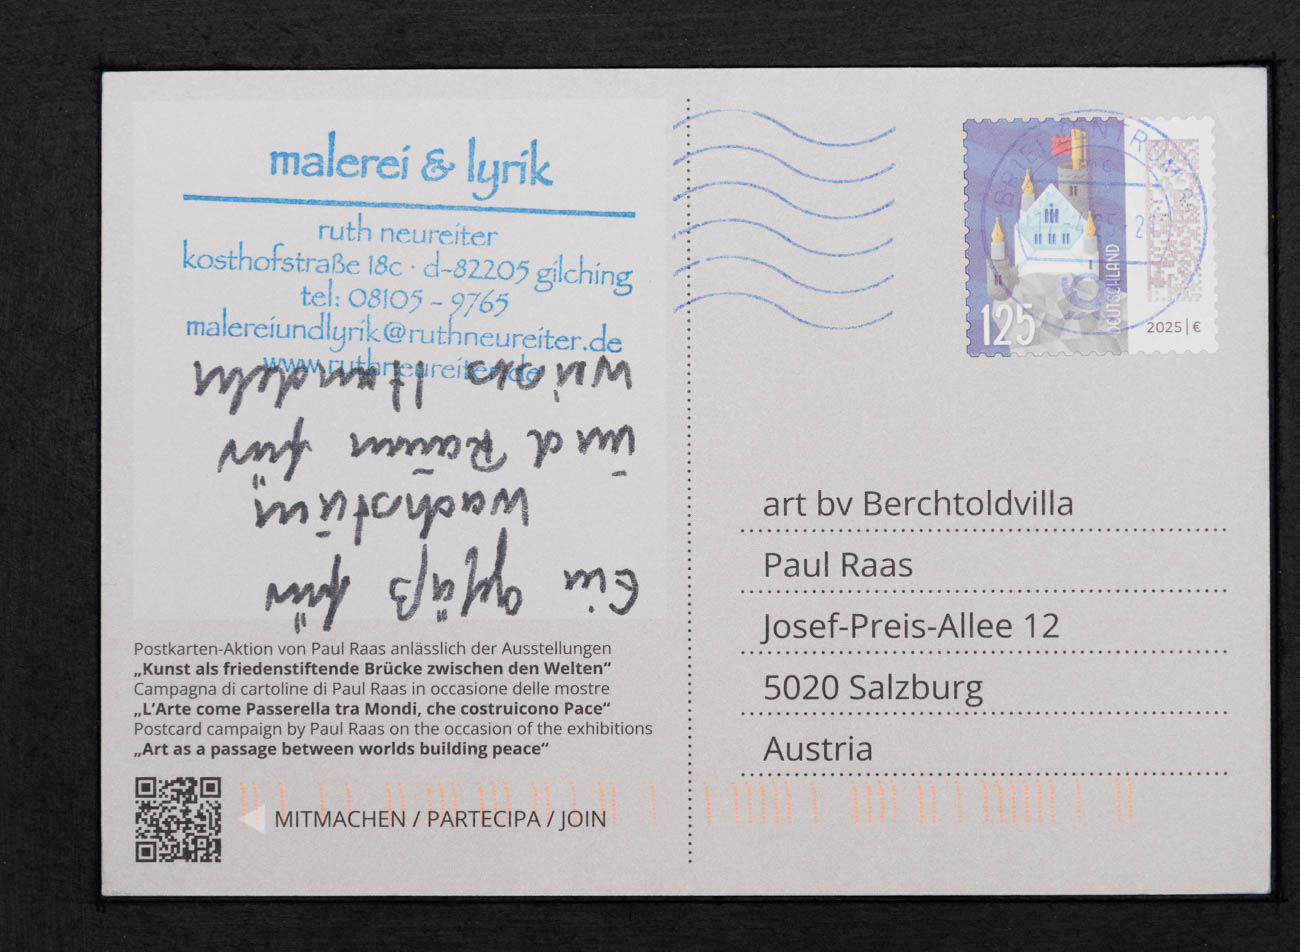 malerei & lyrik
ruth neureiter
kosthofstraße 18c · d-82205 gilching
tel: 08105 - 9765
malereiundlyrik@ruthneureiter.de
www.ruthneureiter.de
Ein Gefäß für
Wachstum
und Raum für
Handeln
Postkarten-Aktion von Paul Raas anlässlich der Ausstellungen
„Kunst als friedenstiftende Brücke zwischen den Welten“
Campagna di cartoline di Paul Raas in occasione delle mostre
„L’Arte come Passerella tra Mondi, che costruicono Pace“
Postcard campaign by Paul Raas on the occasion of the exhibitions
„Art as a passage between worlds building peace“
MITMACHEN / PARTECIPA / JOIN
BRIEFZENTRUM
125
DEUTSCHLAND
2025 | €
art bv Berchtoldvilla
Paul Raas
Josef-Preis-Allee 12
5020 Salzburg
Austria